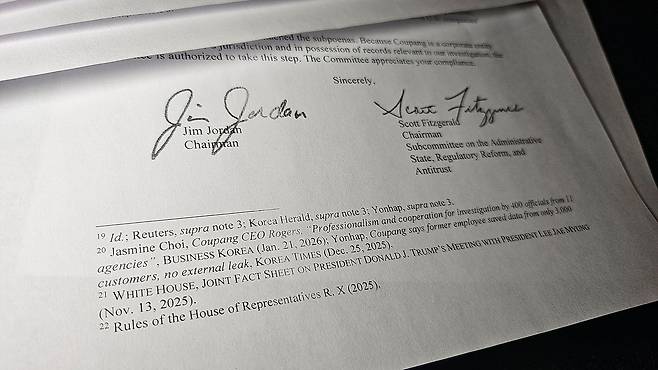 the subpoenas. Because Coupang is a corporate entity
jurisdiction and in possession of records relevant to our investigation, the
is authorized to take this step. The Committee appreciates your compliance.
Sincerely,
Jim Jordan
Scott Fitzgerald
Jim Jordan
Chairman
Scott Fitzgerald
Chairman
Subcommittee on the Administrative
State, Regulatory Reform, and
Antitrust
19 Id.; Reuters, supra note 3; Korea Herald, supra note 3; Yonhap, supra note 3.
20 Jasmine Choi, Coupang CEO Rogers, "Professionalism and cooperation for investigation by 400 officials from 11
agencies", BUSINESS KOREA (Jan. 21, 2026); Yonhap, Coupang says former employee saved data from only 3,000
customers, no external leak, KOREA TIMES (Dec. 25, 2025).
21 WHITE HOUSE, JOINT FACT SHEET ON PRESIDENT DONALD J. TRUMP'S MEETING WITH PRESIDENT LEE JAE MYUNG
(Nov. 13, 2025).
22 Rules of the House of Representatives R. X (2025).